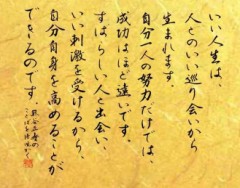 いい人生は、
人とのいい巡り会いから
生まれます。
自分一人の努力だけでは、
成功はほど遠いです。
すばらしい人と出会い、
いい刺激を受けるから、
自分自身を高めることが
できるのです。